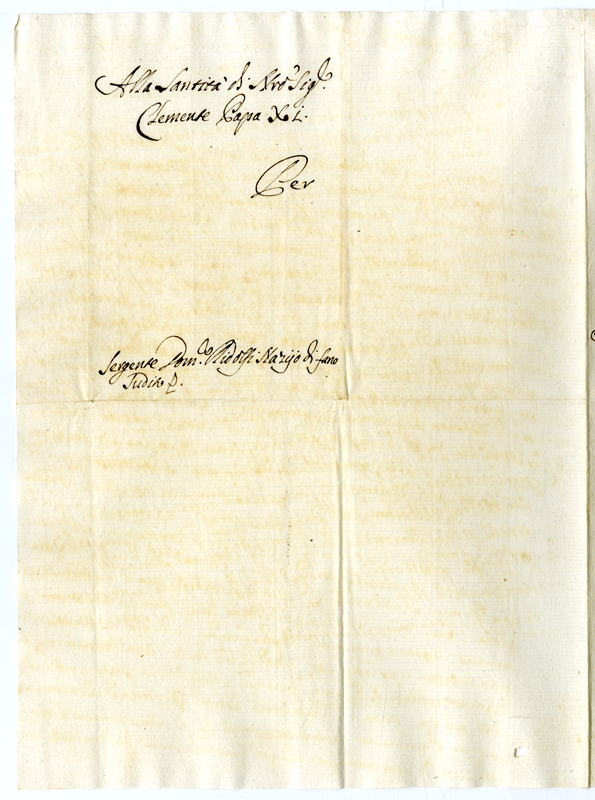 Alla Santità di Nro Sigr.
Clemente Papa XI.
Per
Sergente Domco Ridolfi Nazijo di fano
Sudito